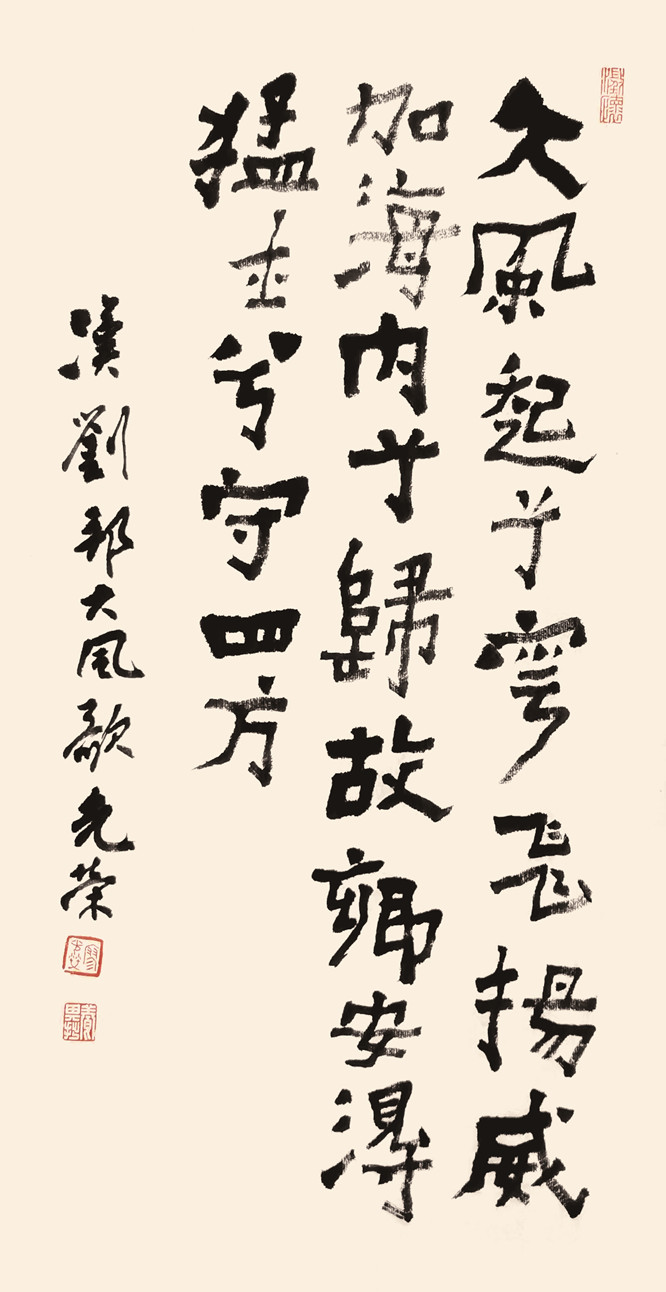 大風起兮雲飛揚威
加海內兮歸故鄉安得
猛士兮守四方
漢劉邦大風歌光榮